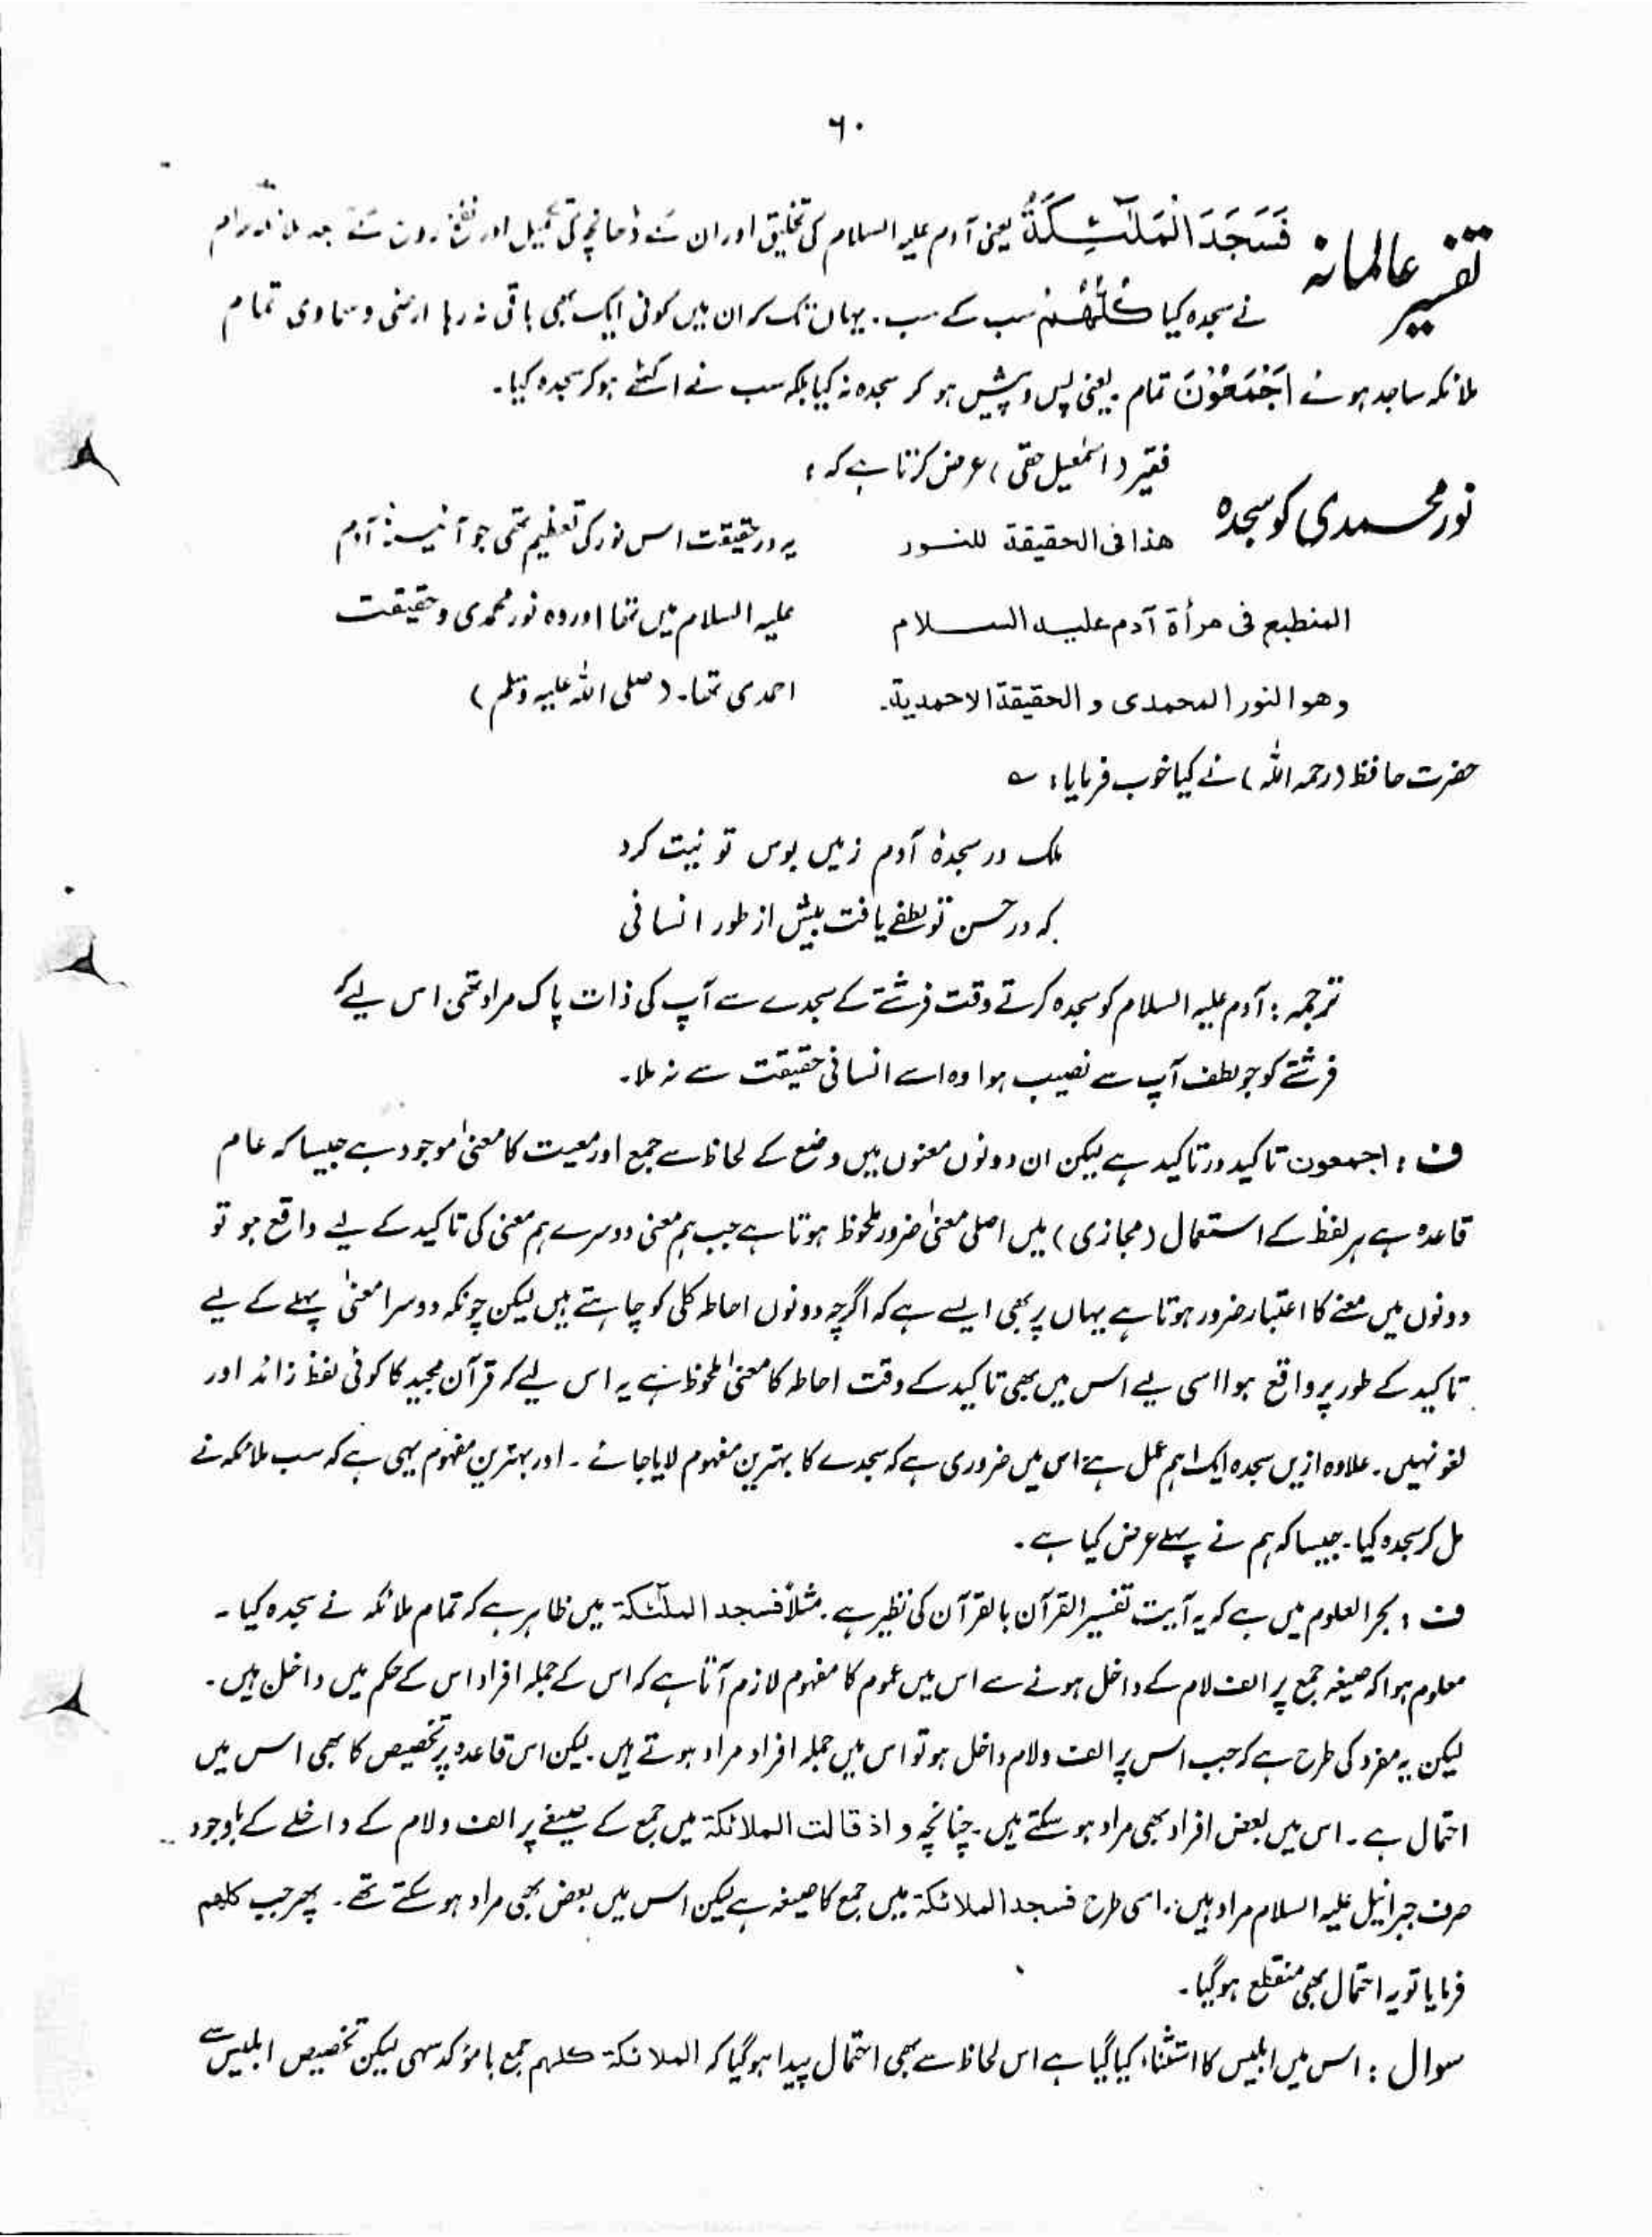 ۶۰
تفسیر عالمانہ فَسَجَدَ الْمَلٰٓئِکَةُ یعنی آدم علیہ السلام کی تخلیق اور ان کے ڈھانچہ کی تکمیل اور نفخ روح کے بعد ملائکہ کرام
نے سجدہ کیا کُلُّهُمْ سب کے سب۔ یہاں تک کہ ان میں کوئی ایک بھی باقی نہ رہا ارضی و سماوی تمام
ملائکہ ساجد ہوئے اَجْمَعُوْنَ تمام۔ یعنی پس و پیش ہو کر سجدہ نہ کیا بلکہ سب نے اکٹھے ہو کر سجدہ کیا۔
فقیر (اسمٰعیل حقی) عرض کرتا ہے کہ:
نور محمدی کو سجدہ
هذا فی الحقیقة للنور
المنطبع فی مرأة آدم علیه السلام
وهو النور المحمدی و الحقیقة الاحمدیة۔
یہ درحقیقت اس نور کی تعظیم تھی جو آئینہ آدم
علیہ السلام میں تھا اور وہ نور محمدی و حقیقت
احمدی تھا۔ (صلی اللہ علیہ وسلم)
حضرت حافظ (رحمہ اللہ) نے کیا خوب فرمایا: ؎
ملک در سجدۂ آدم زمیں بوس تو نیت کرد
کہ در حسن تو لطفے یافت بیش از طور انسانی
ترجمہ: آدم علیہ السلام کو سجدہ کرتے وقت فرشتے کے سجدے سے آپ کی ذات پاک مراد تھی اس لیے کہ
فرشتے کو جو لطف آپ سے نصیب ہوا وہ اسے انسانی حقیقت سے نہ ملا۔
ف: اجمعون تاکید در تاکید ہے لیکن ان دونوں معنوں میں وضع کے لحاظ سے جمع اور معیت کا معنیٰ موجود ہے جیسا کہ عام
قاعدہ ہے ہر لفظ کے استعمال (مجازی) میں اصلی معنیٰ ضرور ملحوظ ہوتا ہے جب ہم معنی دوسرے ہم معنی کی تاکید کے لیے واقع ہو تو
دونوں میں معنے کا اعتبار ضرور ہوتا ہے یہاں پر بھی ایسے ہے کہ اگرچہ دونوں احاطہ کلی کو چاہتے ہیں لیکن چونکہ دوسرا معنیٰ پہلے کے لیے
تاکید کے طور پر واقع ہوا اسی لیے اس میں بھی تاکید کے وقت احاطہ کا معنیٰ ملحوظ ہے یہ اس لیے کہ قرآن مجید کا کوئی لفظ زائد اور
لغو نہیں۔ علاوہ ازیں سجدہ ایک اہم عمل ہے اس میں ضروری ہے کہ سجدے کا بہترین مفہوم لایا جائے۔ اور بہترین مفہوم یہی ہے کہ سب ملائکہ نے
مل کر سجدہ کیا۔ جیسا کہ ہم نے پہلے عرض کیا ہے۔
ف: بحر العلوم میں ہے کہ یہ آیت تفسیر القرآن بالقرآن کی نظیر ہے۔ مثلاً فسجد الملٰٓئکة میں ظاہر ہے کہ تمام ملائکہ نے سجدہ کیا۔
معلوم ہوا کہ صیغہ جمع پر الف لام کے داخل ہونے سے اس میں عموم کا مفہوم لازم آتا ہے کہ اس کے جملہ افراد اس کے حکم میں داخل ہیں۔
لیکن یہ مفرد کی طرح ہے کہ جب اس پر الف ولام داخل ہو تو اس میں جملہ افراد مراد ہوتے ہیں۔ لیکن اس قاعدہ پر تخصیص کا بھی اس میں
احتمال ہے۔ اس میں بعض افراد بھی مراد ہو سکتے ہیں۔ چنانچہ و اذ قالت الملائکة میں جمع کے صیغے پر الف ولام کے داخلے کے باوجود
صرف جبرائیل علیہ السلام مراد ہیں۔ اسی طرح فسجد الملائکة میں جمع کا صیغہ ہے لیکن اس میں بعض بھی مراد ہو سکتے تھے۔ پھر جب کلهم
فرمایا تو یہ احتمال بھی منقطع ہوگیا۔
سوال: اس میں ابلیس کا استثناء کیا گیا ہے اس لحاظ سے بھی احتمال پیدا ہوگیا کہ الملائکة کلهم جمع با مؤکد سہی لیکن تخصیص ابلیس سے